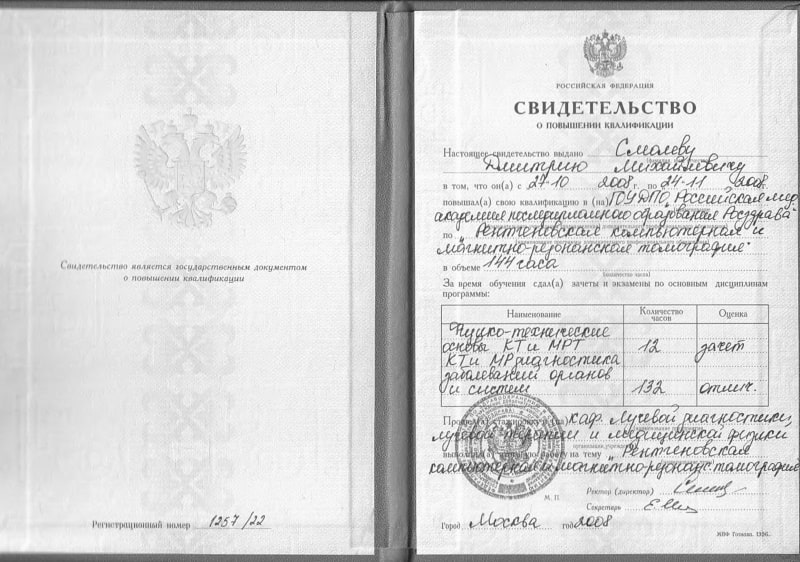 Свидетельство является государственным документом
о повышении квалификации
Регистрационный номер 1257/22
РОССИЙСКАЯ ФЕДЕРАЦИЯ
СВИДЕТЕЛЬСТВО
О ПОВЫШЕНИИ КВАЛИФИКАЦИИ
Настоящее свидетельство выдано Смолеву
Дмитрию Михайловичу
в том, что он(а) с 27-10 2008 г. по 24-11 2008 г.
повышал(а) свою квалификацию в (на) ГОУДПО „Российская мед.
академия последипломного образования Росздрава"
по „Рентгеновская компьютерная и
магнитно-резонансная томография"
в объеме 144 часа
(количество часов)
За время обучения сдал(а) зачеты и экзамены по основным дисциплинам
программы:
Наименование Количество часов Оценка
Физико-технические
основы КТ и МРТ 12 зачет
КТ и МР диагностика
заболеваний органов
и систем 132 отлич.
Прошел(а) стажировку в (на) каф. Лучевой диагностики,
лучевой терапии и медицинской физики
выполнил(а) итоговую работу на тему „Рентгеновская
компьютерная и магнитно-резонанс. томография
Ректор (директор)
М. П.
Секретарь
Город Москва год 2008
МПФ Гознака. 1996.